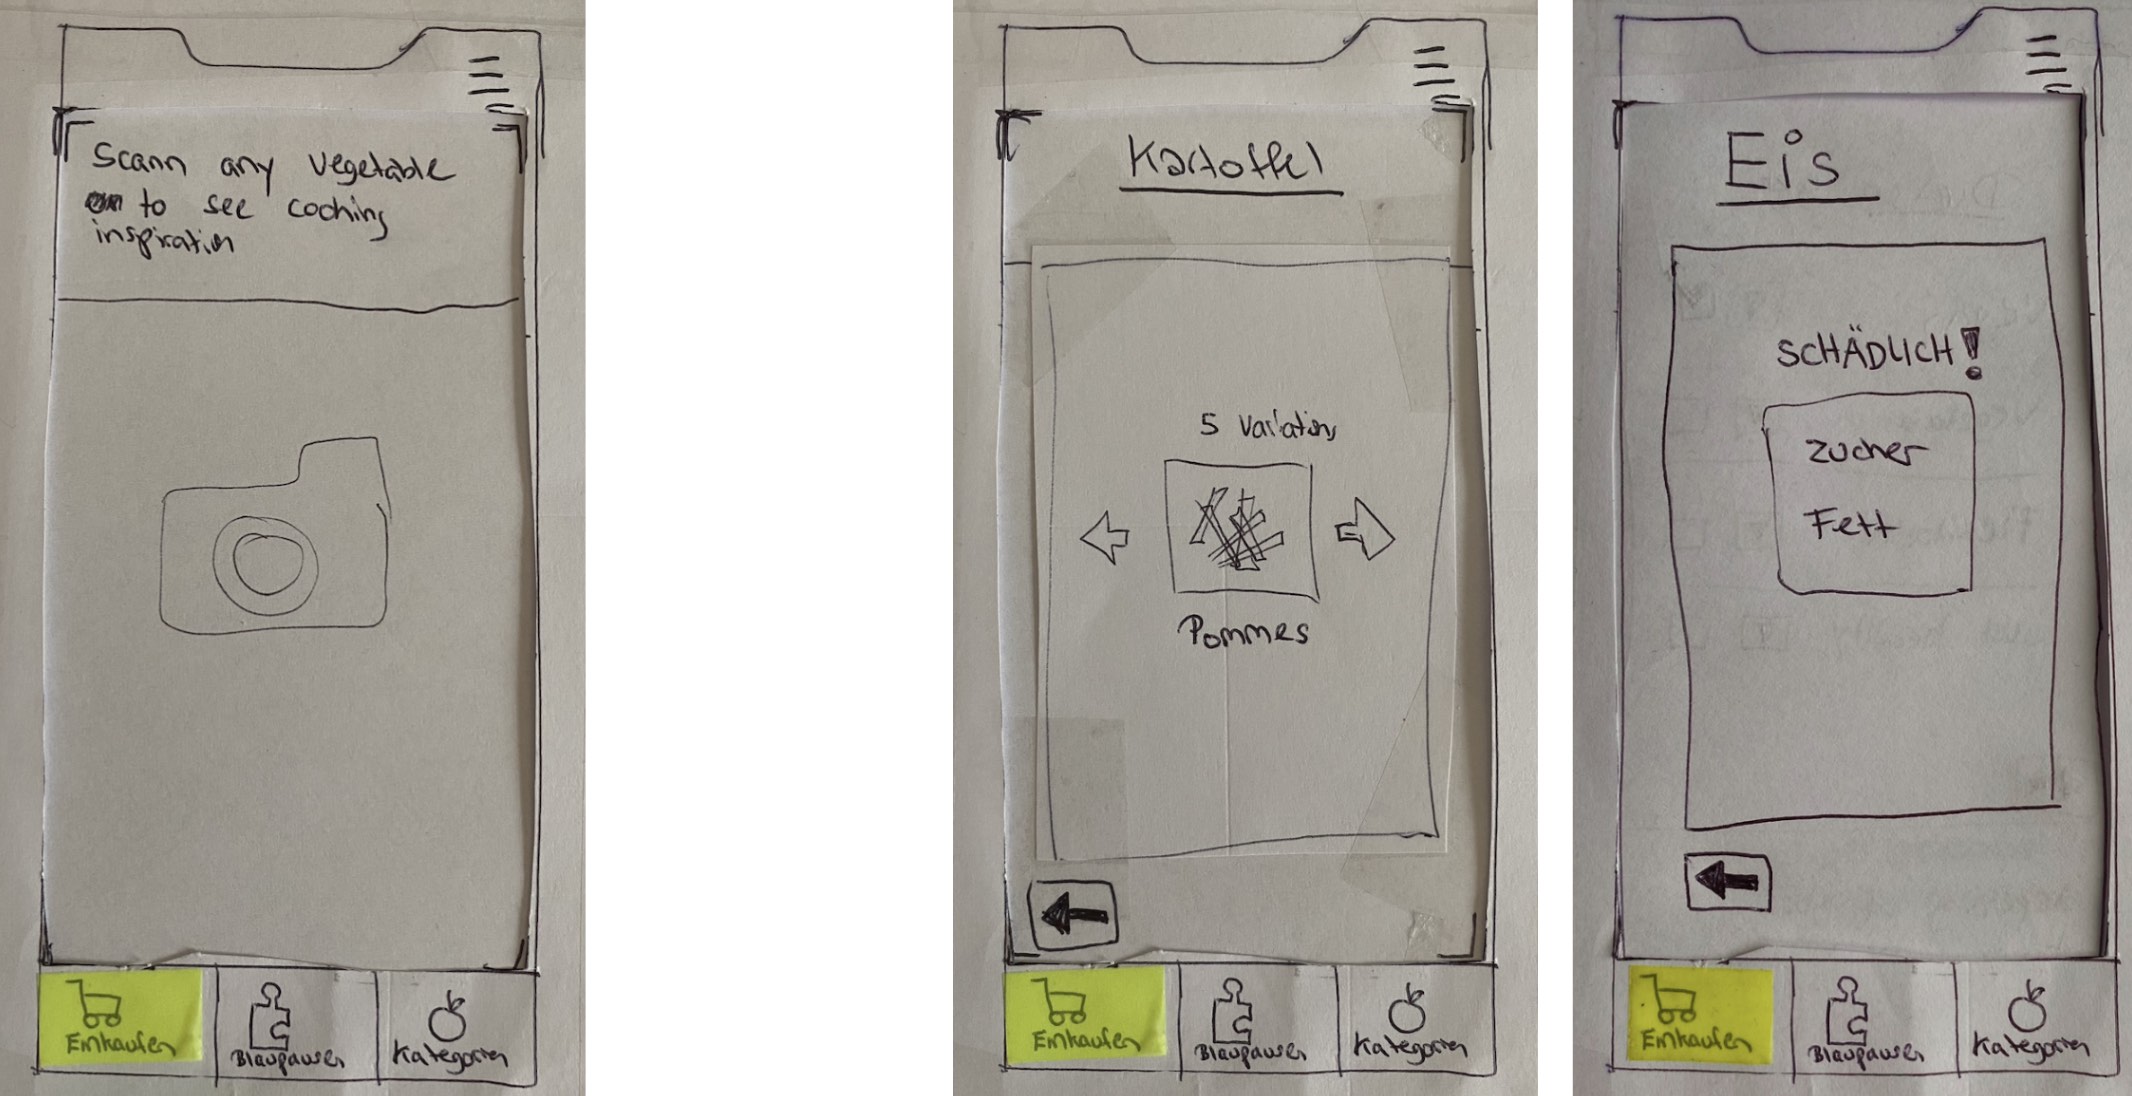 Scann any vegetable
to see coching
inspiration
Einkaufen
Blaupausen
Kategorien
Kartoffel
5 Variations
Pommes
Einkaufen
Blaupausen
Kategorien
Eis
SCHÄDLICH!
Zucher
Fett
Einkaufen
Blaupausen
Kategorien